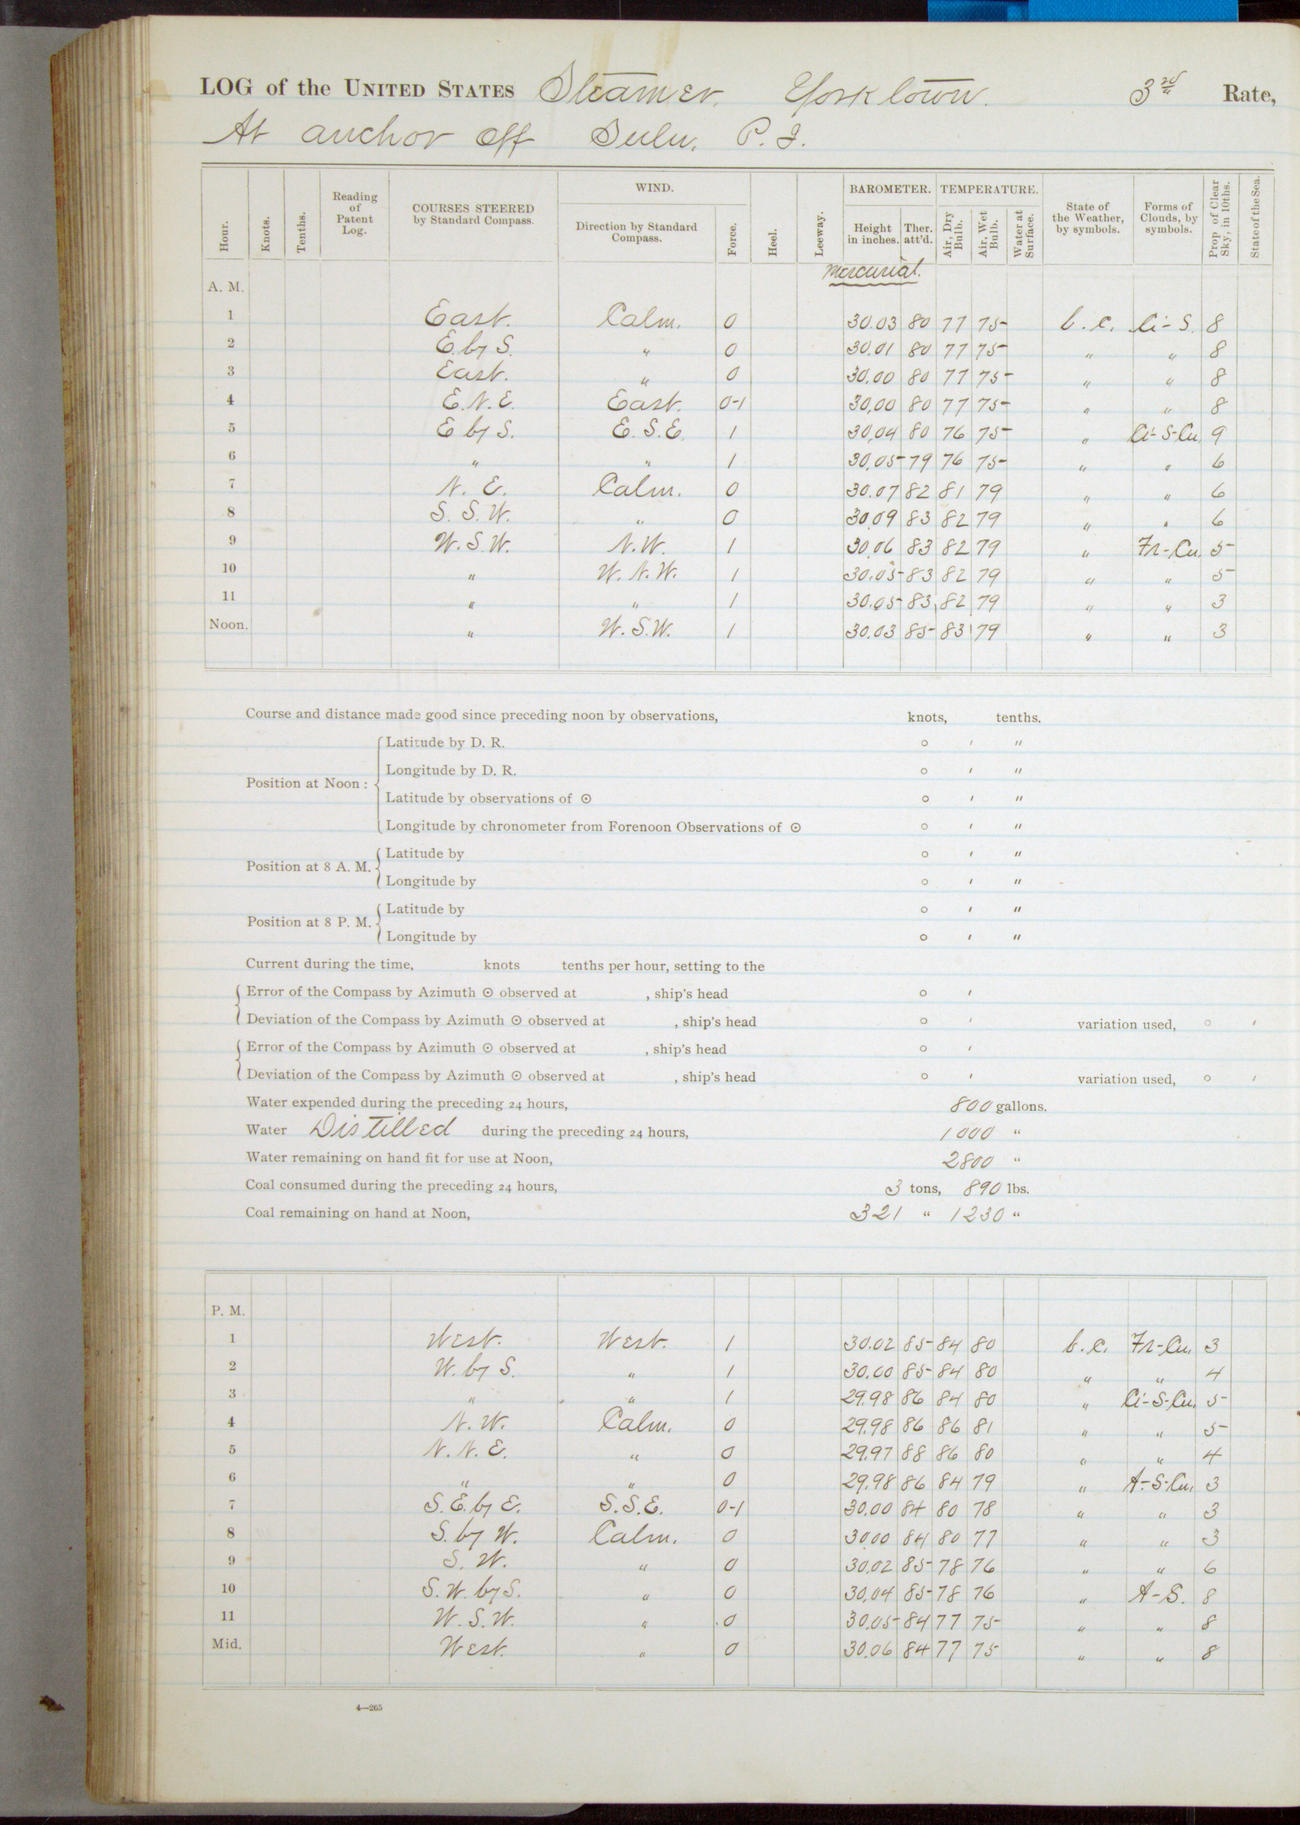 LOG of the UNITED STATES Steamer Yorktown. 3rd Rate,
At anchor off Sulu, P. I.
Hour. Knots. Tenths. Reading of Patent Log. COURSES STEERED by Standard Compass. WIND. Direction by Standard Compass. Force. Heel. Leeway. BAROMETER. Height in inches. Ther. att'd. TEMPERATURE. Air, Dry Bulb. Air, Wet Bulb. Water at Surface. State of the Weather, by symbols. Forms of Clouds, by symbols. Prop of Clear Sky, in 10ths. State of the Sea.
Mercurial.
A. M.
1 East. Calm. 0 30.03 80 77 75 b.c. Ci-S. 8
2 E by S. " 0 30.01 80 77 75 " " 8
3 East. " 0 30.00 80 77 75 " " 8
4 E.N.E. East. 0-1 30.00 80 77 75 " " 8
5 E by S. E.S.E. 1 30.04 80 76 75 " Ci-S-Cu 9
6 " " 1 30.05 79 76 75 " " 6
7 N. E. Calm. 0 30.07 82 81 79 " " 6
8 S. S. W. " 0 30.09 83 82 79 " " 6
9 W. S. W. N.W. 1 30.06 83 82 79 " Fr-Cu. 5
10 " W. N. W. 1 30.05 83 82 79 " " 5
11 " " 1 30.05 83 82 79 " " 3
Noon. " W. S. W. 1 30.03 85 83 79 " " 3
Course and distance made good since preceding noon by observations, knots, tenths.
Position at Noon :
Latitude by D. R. ° ′ ″
Longitude by D. R. ° ′ ″
Latitude by observations of ☉ ° ′ ″
Longitude by chronometer from Forenoon Observations of ☉ ° ′ ″
Position at 8 A. M.
Latitude by ° ′ ″
Longitude by ° ′ ″
Position at 8 P. M.
Latitude by ° ′ ″
Longitude by ° ′ ″
Current during the time, knots tenths per hour, setting to the
Error of the Compass by Azimuth ☉ observed at , ship's head ° ′
Deviation of the Compass by Azimuth ☉ observed at , ship's head ° ′ variation used, ° ′
Error of the Compass by Azimuth ☉ observed at , ship's head ° ′
Deviation of the Compass by Azimuth ☉ observed at , ship's head ° ′ variation used, ° ′
Water expended during the preceding 24 hours, 800 gallons.
Water Distilled during the preceding 24 hours, 1000 "
Water remaining on hand fit for use at Noon, 2800 "
Coal consumed during the preceding 24 hours, 3 tons, 890 lbs.
Coal remaining on hand at Noon, 321 " 1230 "
P. M.
1 West. West. 1 30.02 85 84 80 b.c. Fr-Cu. 3
2 W. by S. " 1 30.00 85 84 80 " " 4
3 " " 1 29.98 86 84 80 " Ci-S-Cu. 5
4 N. W. Calm. 0 29.98 86 86 81 " " 5
5 N. N. E. " 0 29.97 88 86 80 " " 4
6 " " 0 29.98 86 84 79 " A-S-Cu. 3
7 S. E. by E. S.S.E. 0-1 30.00 84 80 78 " " 3
8 S. by W. Calm. 0 30.00 84 80 77 " " 3
9 S. W. " 0 30.02 85 78 76 " " 6
10 S. W. by S. " 0 30.04 85 78 76 " A-S. 8
11 W. S. W. " 0 30.05 84 77 75 " " 8
Mid. West. " 0 30.06 84 77 75 " " 8
4—265